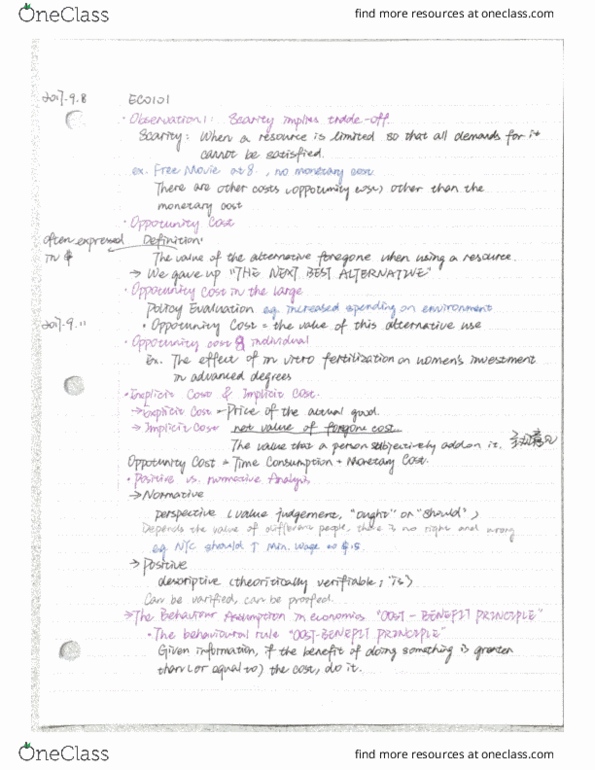 OneClass
find more resources at oneclass.com
2017.9.8 ECO101
• Observation 1: Scarity implies trade-off.
Scarity: When a resource is limited so that all demands for it
cannot be satisfied.
ex. Free Movie at 8. , no monetary cost
There are other costs (opportunity cost) other than the
monetary cost
• Opportunity Cost
often expressed Definition:
in $ The value of the alternative foregone when using a resource.
→ We gave up "THE NEXT BEST ALTERNATIVE"
• Opportunity Cost in the large
Policy Evaluation eg. increased spending on environment
2017.9.11 • Opportunity Cost = the value of this alternative use
• Opportunity cost & individual
Ex. The effect of in vitro fertilization on women's investment
in advanced degrees
• Explicit Cost & Implicit Cost.
→ Explicit Cost = Price of the actual good.
→ Implicit Cost not value of forgone cost
The value that a person subjectively add on it.
Opportunity Cost = Time Consumption + Monetary Cost.
• Positive vs. normative Analysis
→ Normative
perspective (value judgement, "ought" or "should")
Depends the value of different people, there is no right and wrong
eg. NYC should ↑ Min. wage to $15
→ Positive
descriptive (theoritically verifiable, "is")
Can be varified, can be proofed.
→ The Behaviour Assumption in economics "COST - BENEFIT PRINCIPLE"
• The behavioural rule "COST-BENEFIT PRINCIPLE"
Given information, if the benefit of doing something is greater
than (or equal to) the cost, do it.
OneClass
find more resources at oneclass.com